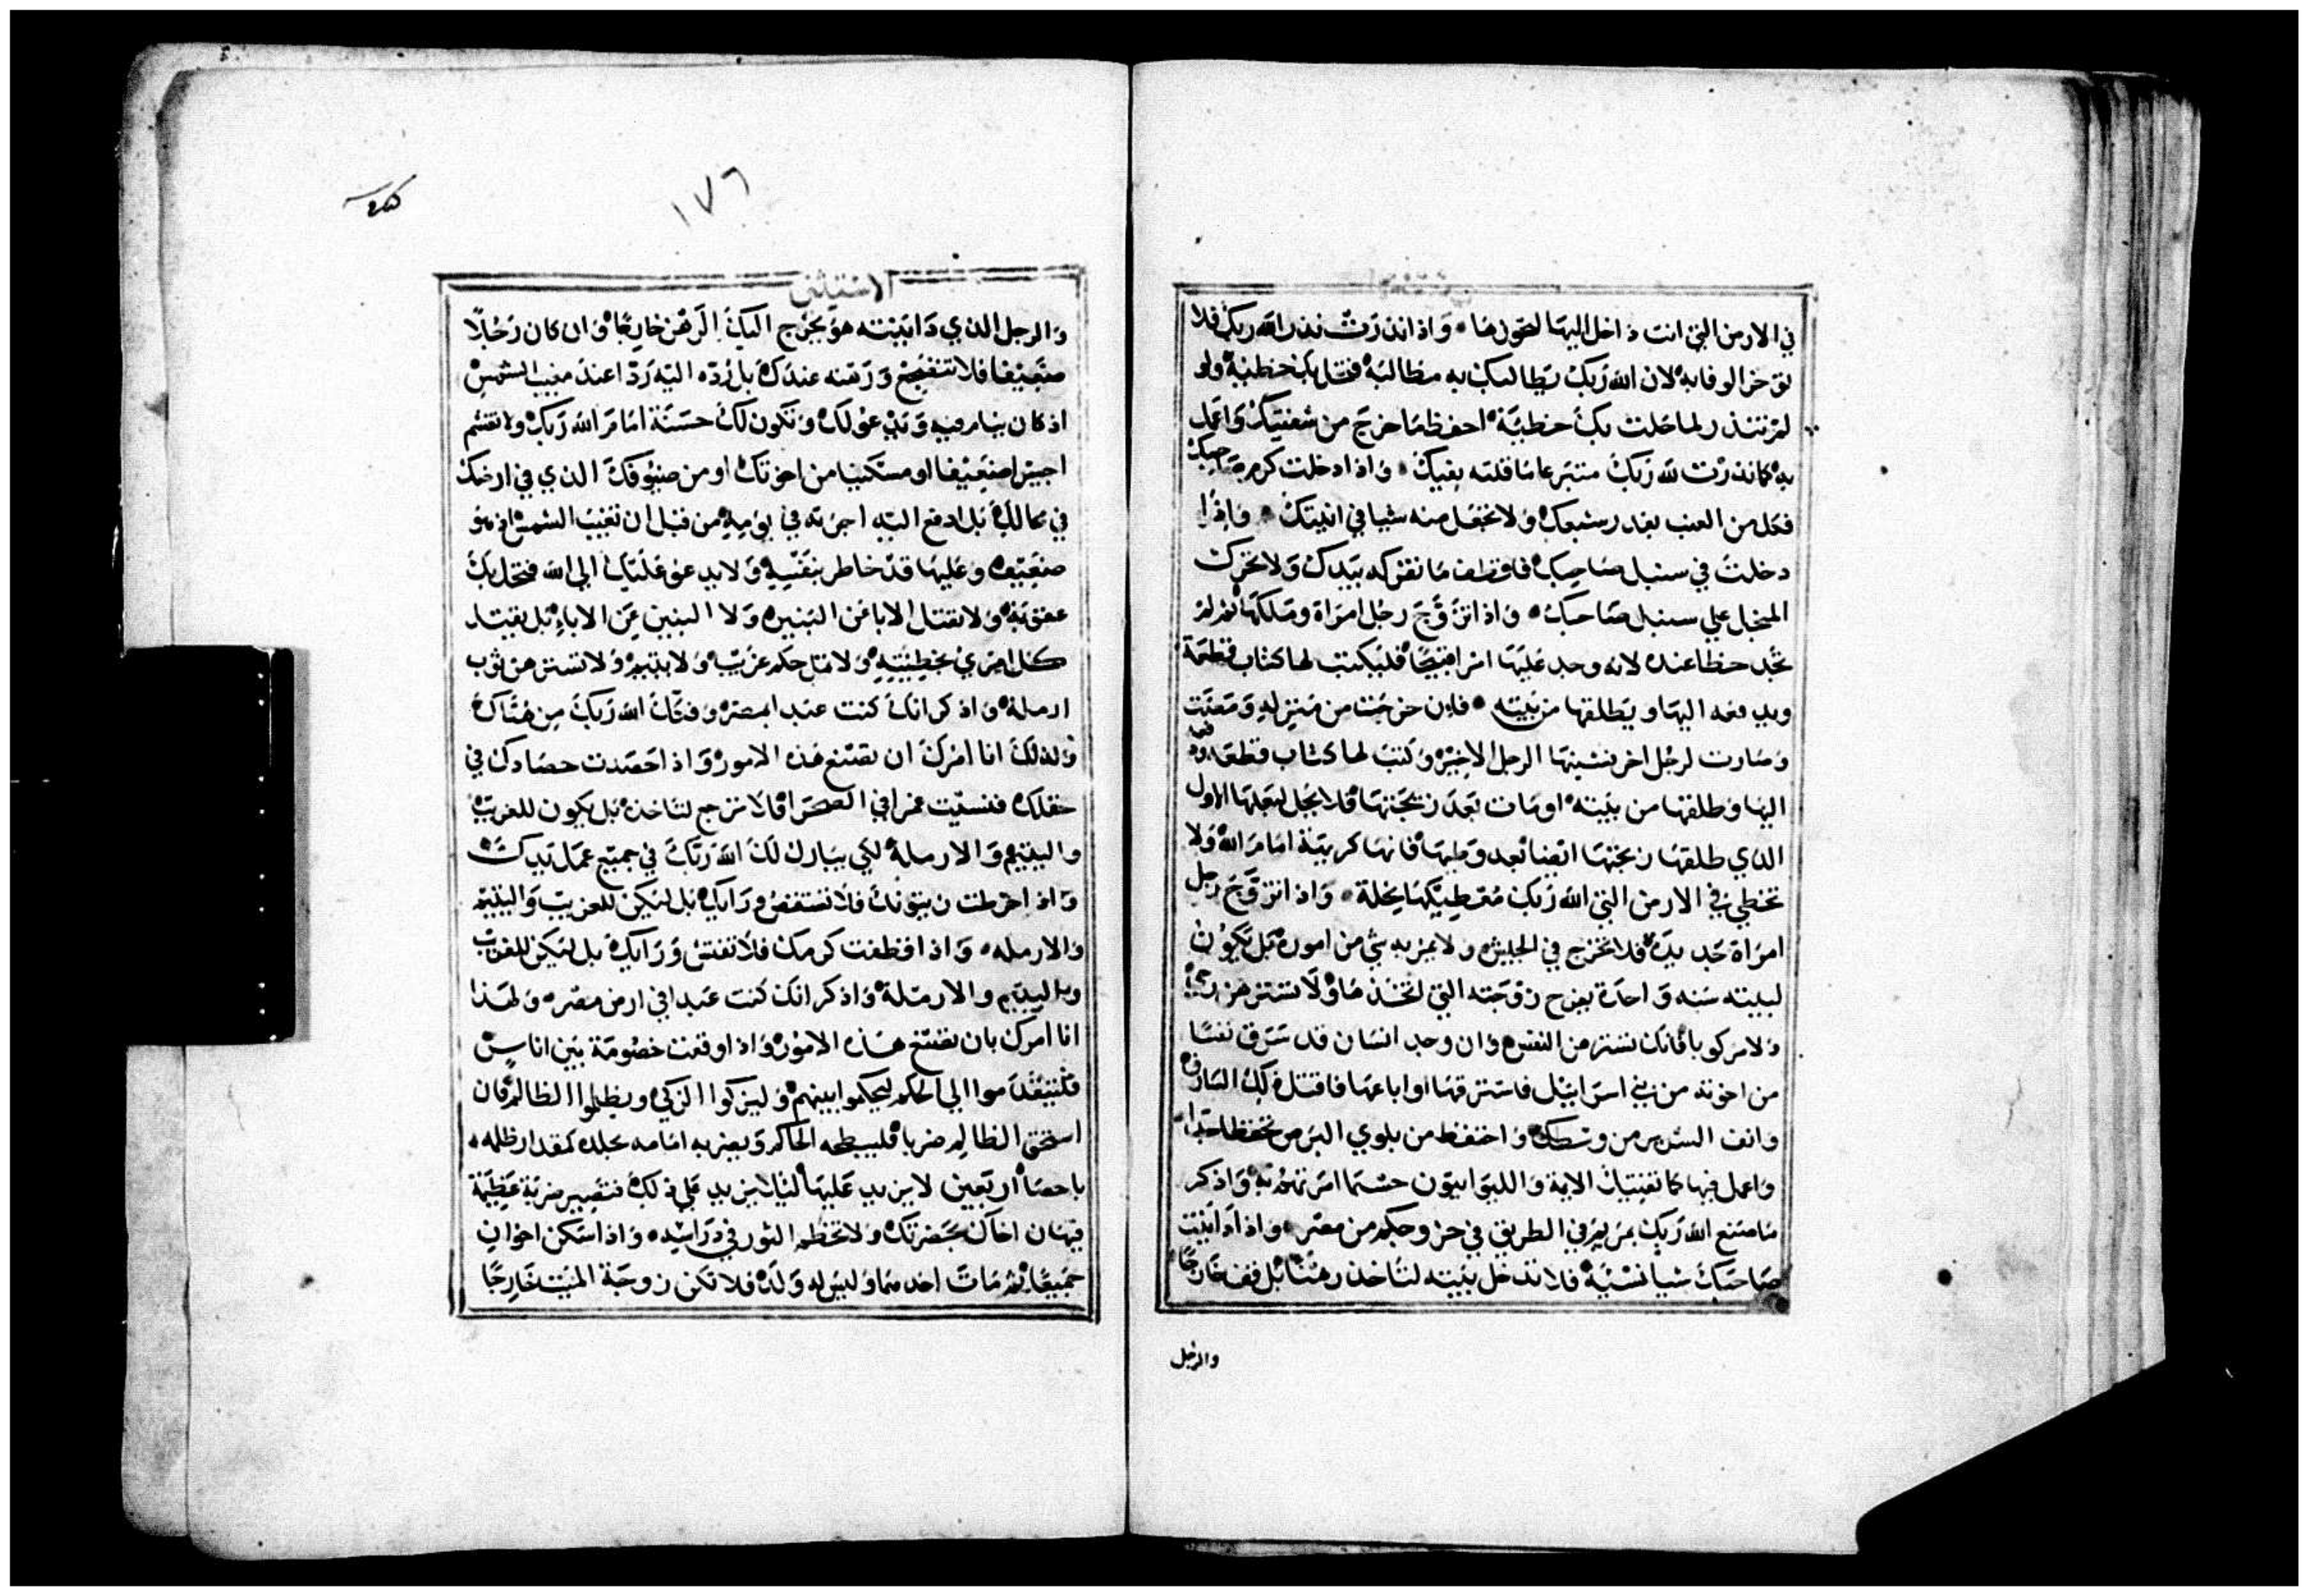 في الارض التي انت داخل اليها لتحولها واذا نذرت نذر الله ربك فلا
توخر الوفا به لان الله ربك يطالبك به مطالبة فتحل بك خطية ولو
لم تنذر لما حلت بك خطية احفظ ما خرج من شفتيك واعمل
به كما نذرت لله ربك متبرعا ما قلته بفيك واذا دخلت كرم صاحبك
فكل من العنب بقدر شبعك ولا تجعل منه شيا في انيتك واذا
دخلت في سنبل صاحبك فاقطف ما تفركه بيدك ولا تحرك
المنجل على سنبل صاحبك واذا تزوج رجل امراة وملكها ثم لم
تجد حظا عنده لانه وجد عليها امرا قبيحا فليكتب لها كتاب قطيعة
ويدفعه اليها ويطلقها من بيته فان خرجت من منزله ومضت
وصارت لرجل اخر فشنيها الرجل الاخير وكتب لها كتاب قطع ودفعه
اليها وطلقها من بيته او مات بعد زيجتها فلا يحل لبعلها الاول
الذي طلقها زيجتها ايضا بعد وطيها فانها كريهة امام الله ولا
تخطي في الارض التي الله ربك معطيكها نحلة واذا تزوج رجل
امراة جديدة فلا تخرج في الجيش ولا يمر به شي من اموره بل يكون
لبيته سنه واحدة يفرح زوجته التي اتخذها ولا تسترهن رحي
ولا مركوبا فانك تسترهن النفس وان وجد انسان قد سرق نفسا
من اخوته من بني اسراييل فاسترقها او اباعها فاقتل ذلك السارق
وانف الشرير من وسطك واحتفظ من بلوي البرص تحفظا جدا
واعمل فيها كما تفتيك الايمة والليوانيون حسبما امرتهم به واذكر
ما صنع الله ربك بمريم في الطريق في خروجكم من مصر واذا داينت
صاحبك شيا نسئية فلا تدخل بيته لتاخذ رهنا بل قف خارجا
والرجل
١٧٦
الاستثني
والرجل الذي داينته هو يخرج اليك الرهن خارجا وان كان رجلا
ضعيفا فلا تضجع ورهنه عندك بل رده اليه ردا عند مغيب الشمس
اذ كان ينام فيه ويدعو لك وتكون لك حسنة امام الله ربك ولا تغشم
اجيرا ضعيفا او مسكينا من اخوتك او من ضيوفك الذي في ارضك
في محالك بل ادفع اليه اجرته في يومه من قبل ان تغيب الشمس اذ هو
ضعيف وعليها قد خاطر بنفسه ولا يدعو عليك الي الله فتحل بك
عقوبة ولا تقتل الابا عن البنين ولا البنين عن الاباء بل يقتل
كل امري بخطيته ولا تمل حكم غريب ولا يتيم ولا تسترهن ثوب
ارملة واذكر انك كنت عبد بمصر وفكك الله ربك من هناك
ولذلك انا امرك ان تصنع هذه الامور واذا حصدت حصادك في
حقلك فنسيت غمرا في الصحرا فلا ترجع لتاخذه بل يكون للغريب
واليتيم والارملة لكي يبارك لك الله ربك في جميع عمل يديك
واذا خرطت زيتونك فلا تستقص وراك بل ليكن للغريب واليتيم
والارمله واذا قطفت كرمك فلا تفتش وراك بل ليكن للغريب
واليتيم والارملة واذكر انك كنت عبدا في ارض مصر ولهذا
انا امرك بان تصنع هذه الامور واذا وقعت خصومة بين اناس
فليتقدموا الي الحكم ليحكموا بينهم وليزكوا الزكي ويظلموا الظالم فان
استحق الظالم ضربا فليبطحه الحاكم ويضربه امامه بجلده كمقدار ظلمه
باحصا اربعين لا يزيد عليها ليلا يزيد على ذلك فتصير ضربة عظيمة
فيهان اخاك بحضرتك ولا تخطم الثور في دراسه واذا سكن اخوان
جميعا ثم مات احدهما وليس له ولد فلا تكن زوجة الميت خارجا